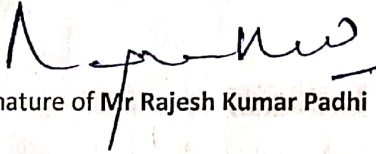 nature of Mr Rajesh Kumar Padhi